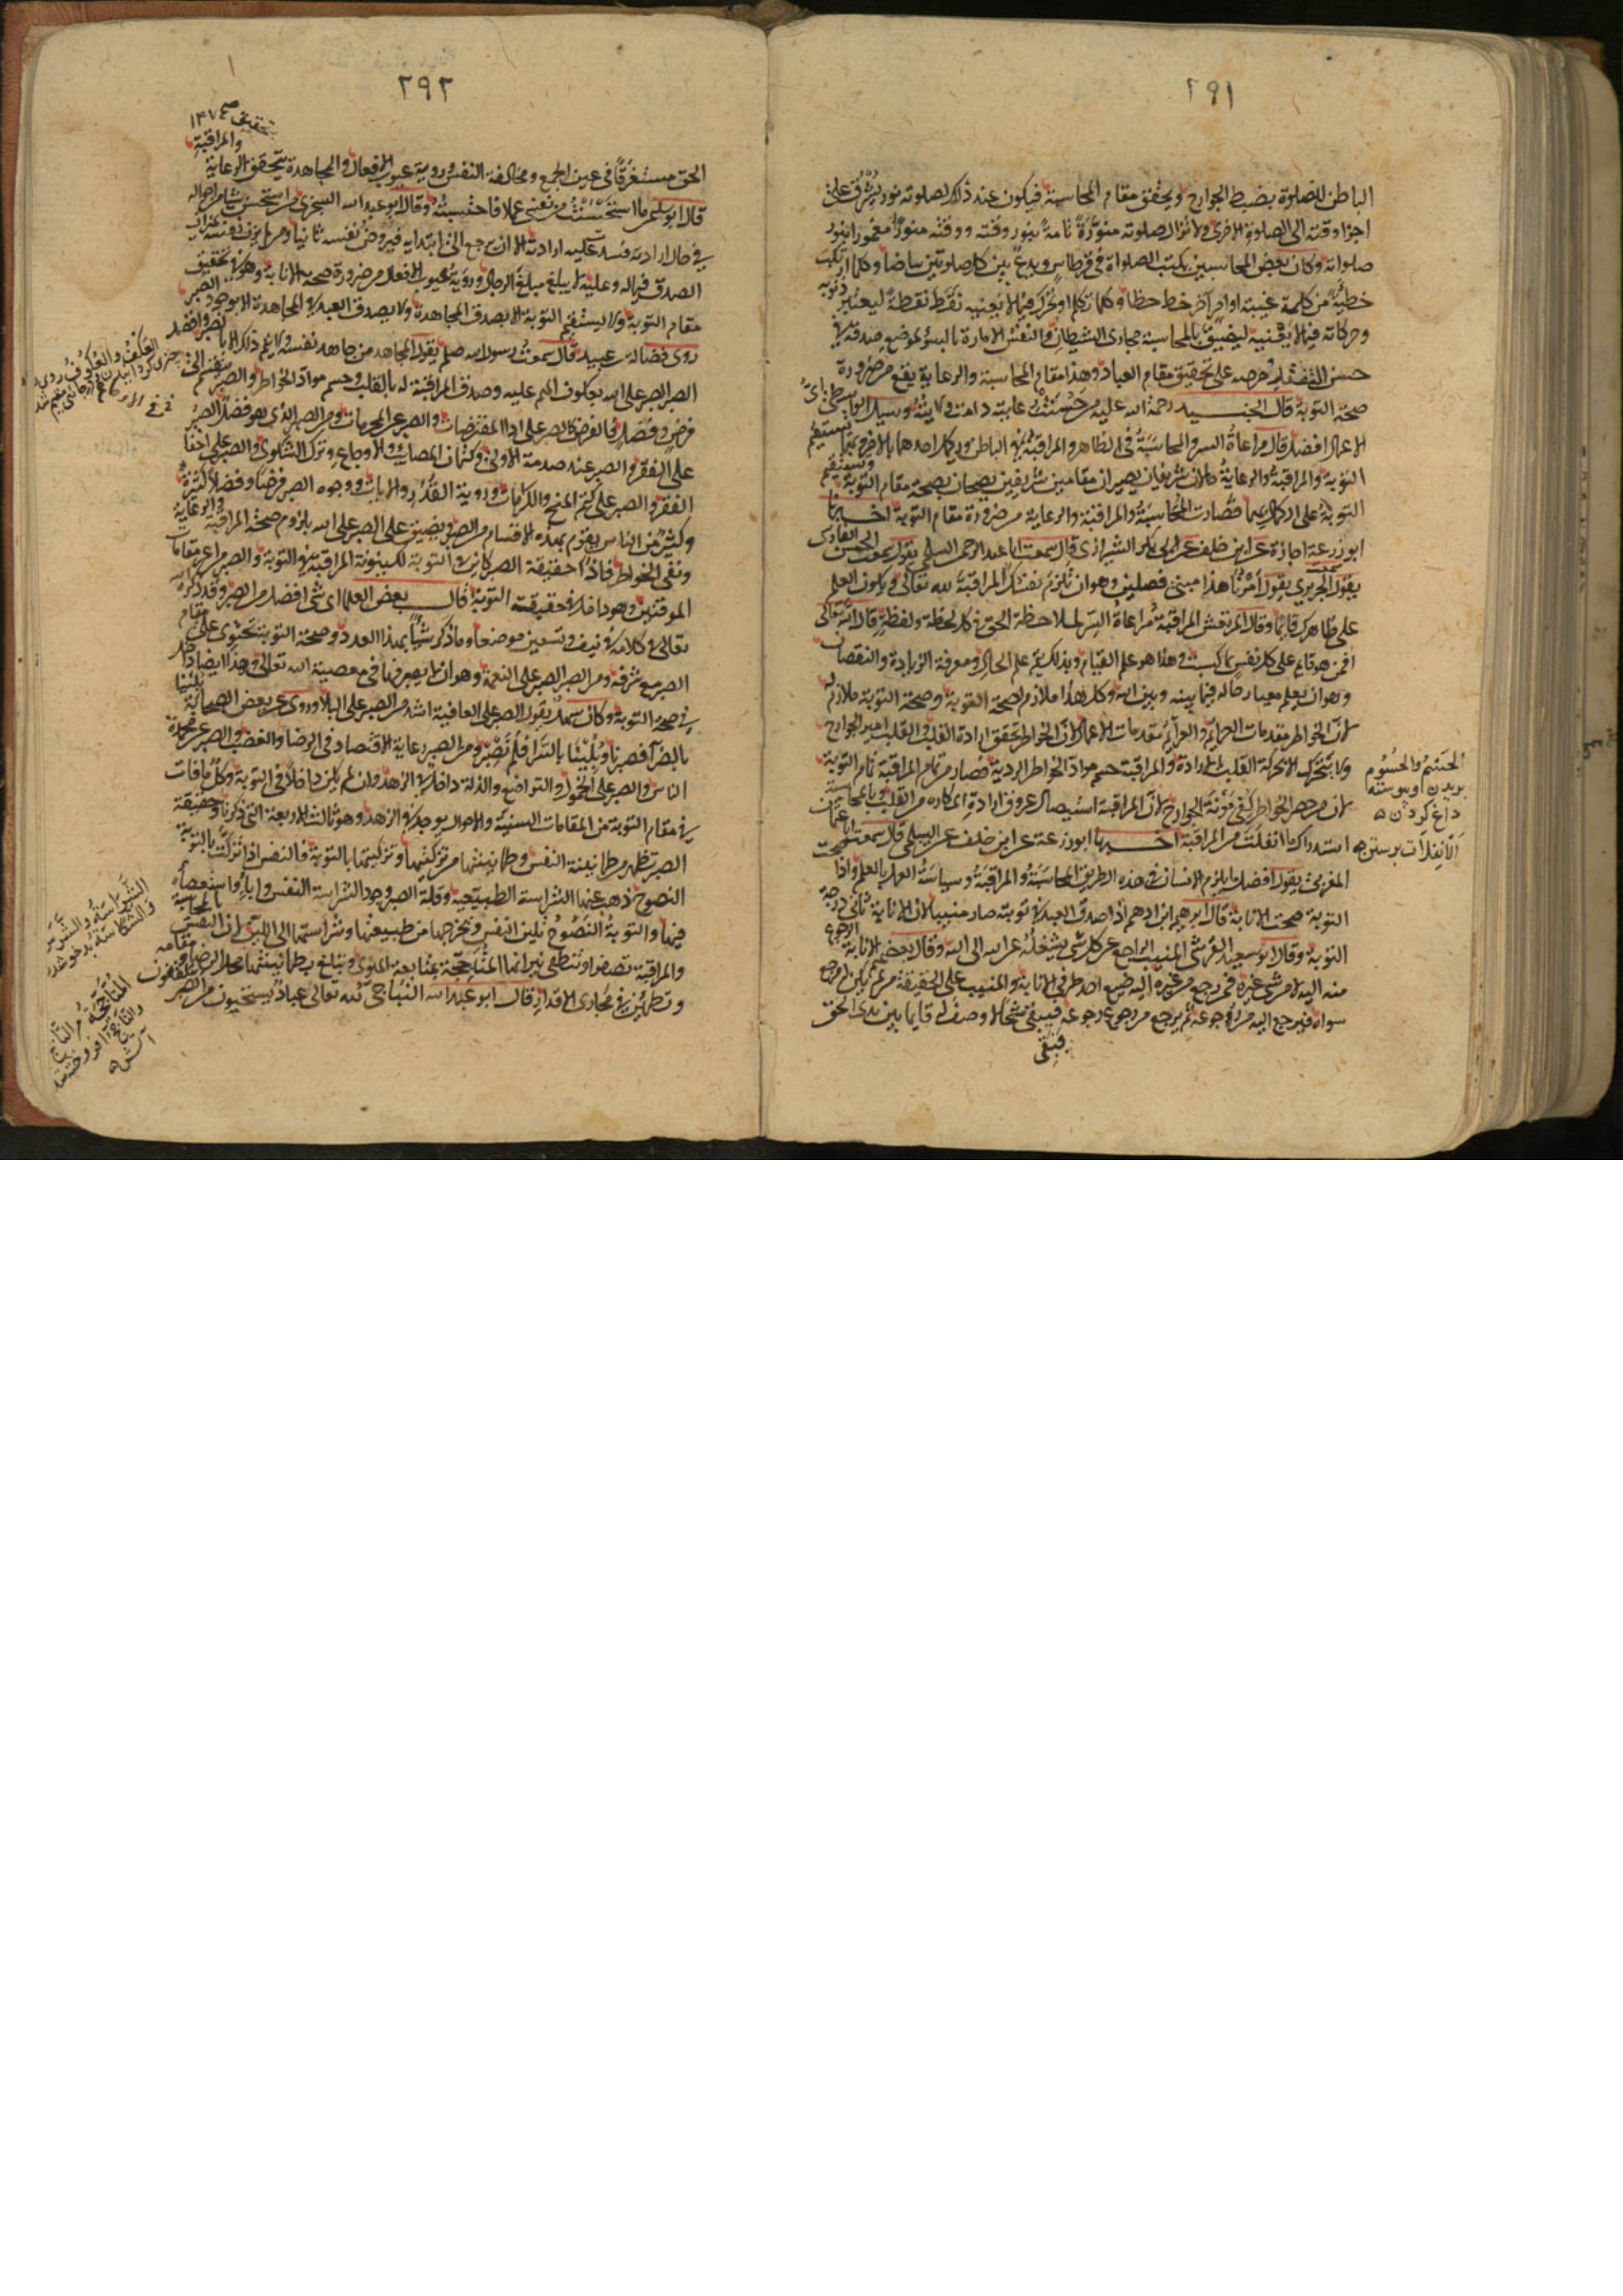 ٢٩١
الباطن للصلوة بضبط الجوارح ويحقق مقام المحاسبة فيكون عند ذلك لصلوته نور يشرق على
اجزا وقته الى الصلوة الاخرى ولا تزال صلوته منورة تامة بنور وقته ووقته منورا مغمورا بنور
صلواته وكان بعض المحاسبين يكتب الصلواة في قرطاس ويدع بين كل صلوتين بياضا وكلما ارتكب
خطيئة من كلمة غيبة او امر آخر خط خطا وكلما تكلم او تحرك فيما لا يعنيه نقط نقطة ليعتبر ذنوبه
وحركاته فيما لا يعنيه ليضيق بالمحاسبة مجاري الشيطان والنفس الامارة بالسوء لموضع صدقه في
حسن التفقد وحرصه على تحقيق مقام العباد وهذا مقام المحاسبة والرعاية يقع من ضرورة
صحة التوبة قال الجنيد رحمة الله عليه من حسنت رعايته دامت ولايته وسيل الواسطي اي
الاعمال افضل قال مراعاة السر والمحاسبة في الظاهر والمراقبة في الباطن ويكمل احدهما بالاخر وبهما يستقيم
التوبة والمراقبة والرعاية حالان شريفان يصيران مقامين شريفين يصحان بصحة مقام التوبة وتستقيم
التوبة على الكمال بهما فصارت المحاسبة والمراقبة والرعاية من ضرورة مقام التوبة اخبرنا
ابو زرعة اجازة عن ابن خلف عن ابي بكر الشيرازي قال سمعت ابا عبد الرحمن السلمي يقول سمعت الحسن الفارسي
يقول سمعت الجريري يقول امرنا هذا مبني على فصلين وهو ان تلزم نفسك المراقبة لله تعالى ويكون العلم
على ظاهرك قايما وقال المرتعش المراقبة مراعاة السر لملاحظة الحق في كل لحظة ولفظة قال الله تعالى
افمن هو قايم على كل نفس بما كسبت وهذا هو علم القيام وبذلك يتم علم الحال ومعرفة الزيادة والنقصان
وهو ان يعلم معيار حاله فيما بينه وبين الله وكل هذا ملازم لصحة التوبة وصحة التوبة ملازم له
لان الخواطر مقدمات العزايم والعزايم مقدمات الاعمال لان الخواطر تحقق ارادة القلب والقلب امير الجوارح
ولا يتحرك الا بحركة القلب بالارادة وبالمراقبة حسم مواد الخواطر الردية فصار من تمام المراقبة تمام التوبة
لان من حصر الخواطر كفى مؤنة الجوارح لان بالمراقبة استيصال عروق ارادة المكاره من القلب وبالمحاسبة
استدراك ما انفلت من المراقبة اخبرنا ابو زرعة عن ابن خلف عن السلمي قال سمعت ابا عثمان
المغربي يقول افضل ما يلزم الانسان في هذه الطريق المحاسبة والمراقبة وسياسة العمل بالعلم واذا صحت
التوبة صحت الانابة قال ابرهيم ابن ادهم اذا صدق العبد في توبته صار منيبا لان الانابة ثاني درجة
التوبة وقال ابو سعيد القرشي المنيب الراجع عن كل شي يشغله عن الله الى الله وقال بعضهم الانابة الرجوع
منه اليه لا من شي غيره فمن رجع من غيره اليه ضيع احد طرفي الانابة والمنيب على الحقيقة من لم يكن له مرجع
سواه فيرجع اليه من رجوعه ثم يرجع من رجوع رجوعه فيبقى شبحا لا وصف له قايما بين يدي الحق
فبقى
الحسم والحسوم
بريدن وپيوسته
داغ كردن
الانفلات برستن
٢٩٢
الحق مستغرقا في عين الجمع ومخالفة النفس وروية عيوب الافعال والمجاهدة تتحقق الرعاية
والمراقبة
قال ابو سليمن ما استحسنت من نفسي عملا فاحتسبته وقال ابو عبد الله السجزي من استحسن شيا من احواله
في حال ارادته فسدت عليه ارادته الا ان يرجع الى ابتدايه فيروض نفسه ثانيا ومن لم يزن نفسه بميزان
الصدق فيما له وعليه لا يبلغ مبلغ الرجال وروية عيوب الافعال من ضرورة صحة الانابة وهو في تحقيق
مقام التوبة ولا يستقيم التوبة الا بصدق المجاهدة ولا يصدق العبد في المجاهدة الا بوجود الصبر
روى فضالة بن عبيد قال سمعت رسول الله صلعم يقول المجاهد من جاهد نفسه ولا يتم ذلك الا بالصبر وافضل
الصبر الصبر على الله بعكوف الهم عليه وصدق المراقبة له بالقلب وحسم مواد الخواطر والصبر ينقسم الى
فرض وفضل فالفرض كالصبر على ادا المفترضات والصبر عن المحرمات ومن الصبر الذي هو فضل الصبر
على الفقر والصبر عند صدمة الاولى وكتمان المصائب والاوجاع وترك الشكوى والصبر على اخفا
الفقر والصبر على كتم المنح والكرامات وروية القدر والايات ووجوه الصبر فرضا وفضلا كثيرة
وكثير من الناس يقوم بهذه الاقسام من الصبر ويضيق على الصبر على الله بلزوم صحة المراقبة والرعاية
ونفي الخواطر فاذا حقيقة الصبر كاين في التوبة لكينونة المراقبة في التوبة والصبر من اعز مقامات
الموقنين وهو داخل في حقيقة التوبة قال بعض العلما اي شي افضل من الصبر وقد ذكره الله
تعالى في كلامه في نيف وتسعين موضعا وما ذكر شيا بهذا العدد وصحة التوبة تحتوي على مقام
الصبر مع شرفه ومن الصبر الصبر على النعمة وهو ان لا يصرفها في معصية الله تعالى وهذا ايضا داخل
في صحة التوبة وكان سهل يقول الصبر على العافية اشد من الصبر على البلا وروي عن بعض الصحابة بلينا
بالضرا فصبرنا وبلينا بالسرا فلم نصبر ومن الصبر رعاية الاقتصاد في الرضا والغضب والصبر عن محمدة
الناس والصبر على الخمول والتواضع والذلة داخل في الزهد وان لم يكن داخلا في التوبة وكل ما فات
في مقام التوبة من المقامات السنية والاحوال يوجد في الزهد وهو ثالث الاربعة التي ذكرنا وحقيقة
الصبر تظهر من طمانينة النفس وطمانينتها من تزكيتها وتزكيتها بالتوبة فالنفس اذا تزكت بالتوبة
النصوح ذهب عنها الشراسة الطبيعية وقلة الصبر وجود الشراسة النفس وابائها واستعصائها
فيها والتوبة النصوح تلين النفس وتخرجها من طبيعتها وشراستها الى اللين لان النفس بالمحاسبة
والمراقبة تصفو وتنطفي نيرانها المتأججة بمتابعة الهوى وتبلغ بطمانينتها محل الرضا ومقامه
وتطمئن في مجاري الاقدار قال ابو عبد الله النباجي لله تعالى عباد يستحيون من الصبر ويتلقفون
العكف والعكوف
الشراسة
والشكاسة بدخو شدن
المتأججة من التاجج
والتاجج افروخته شدن
آتش